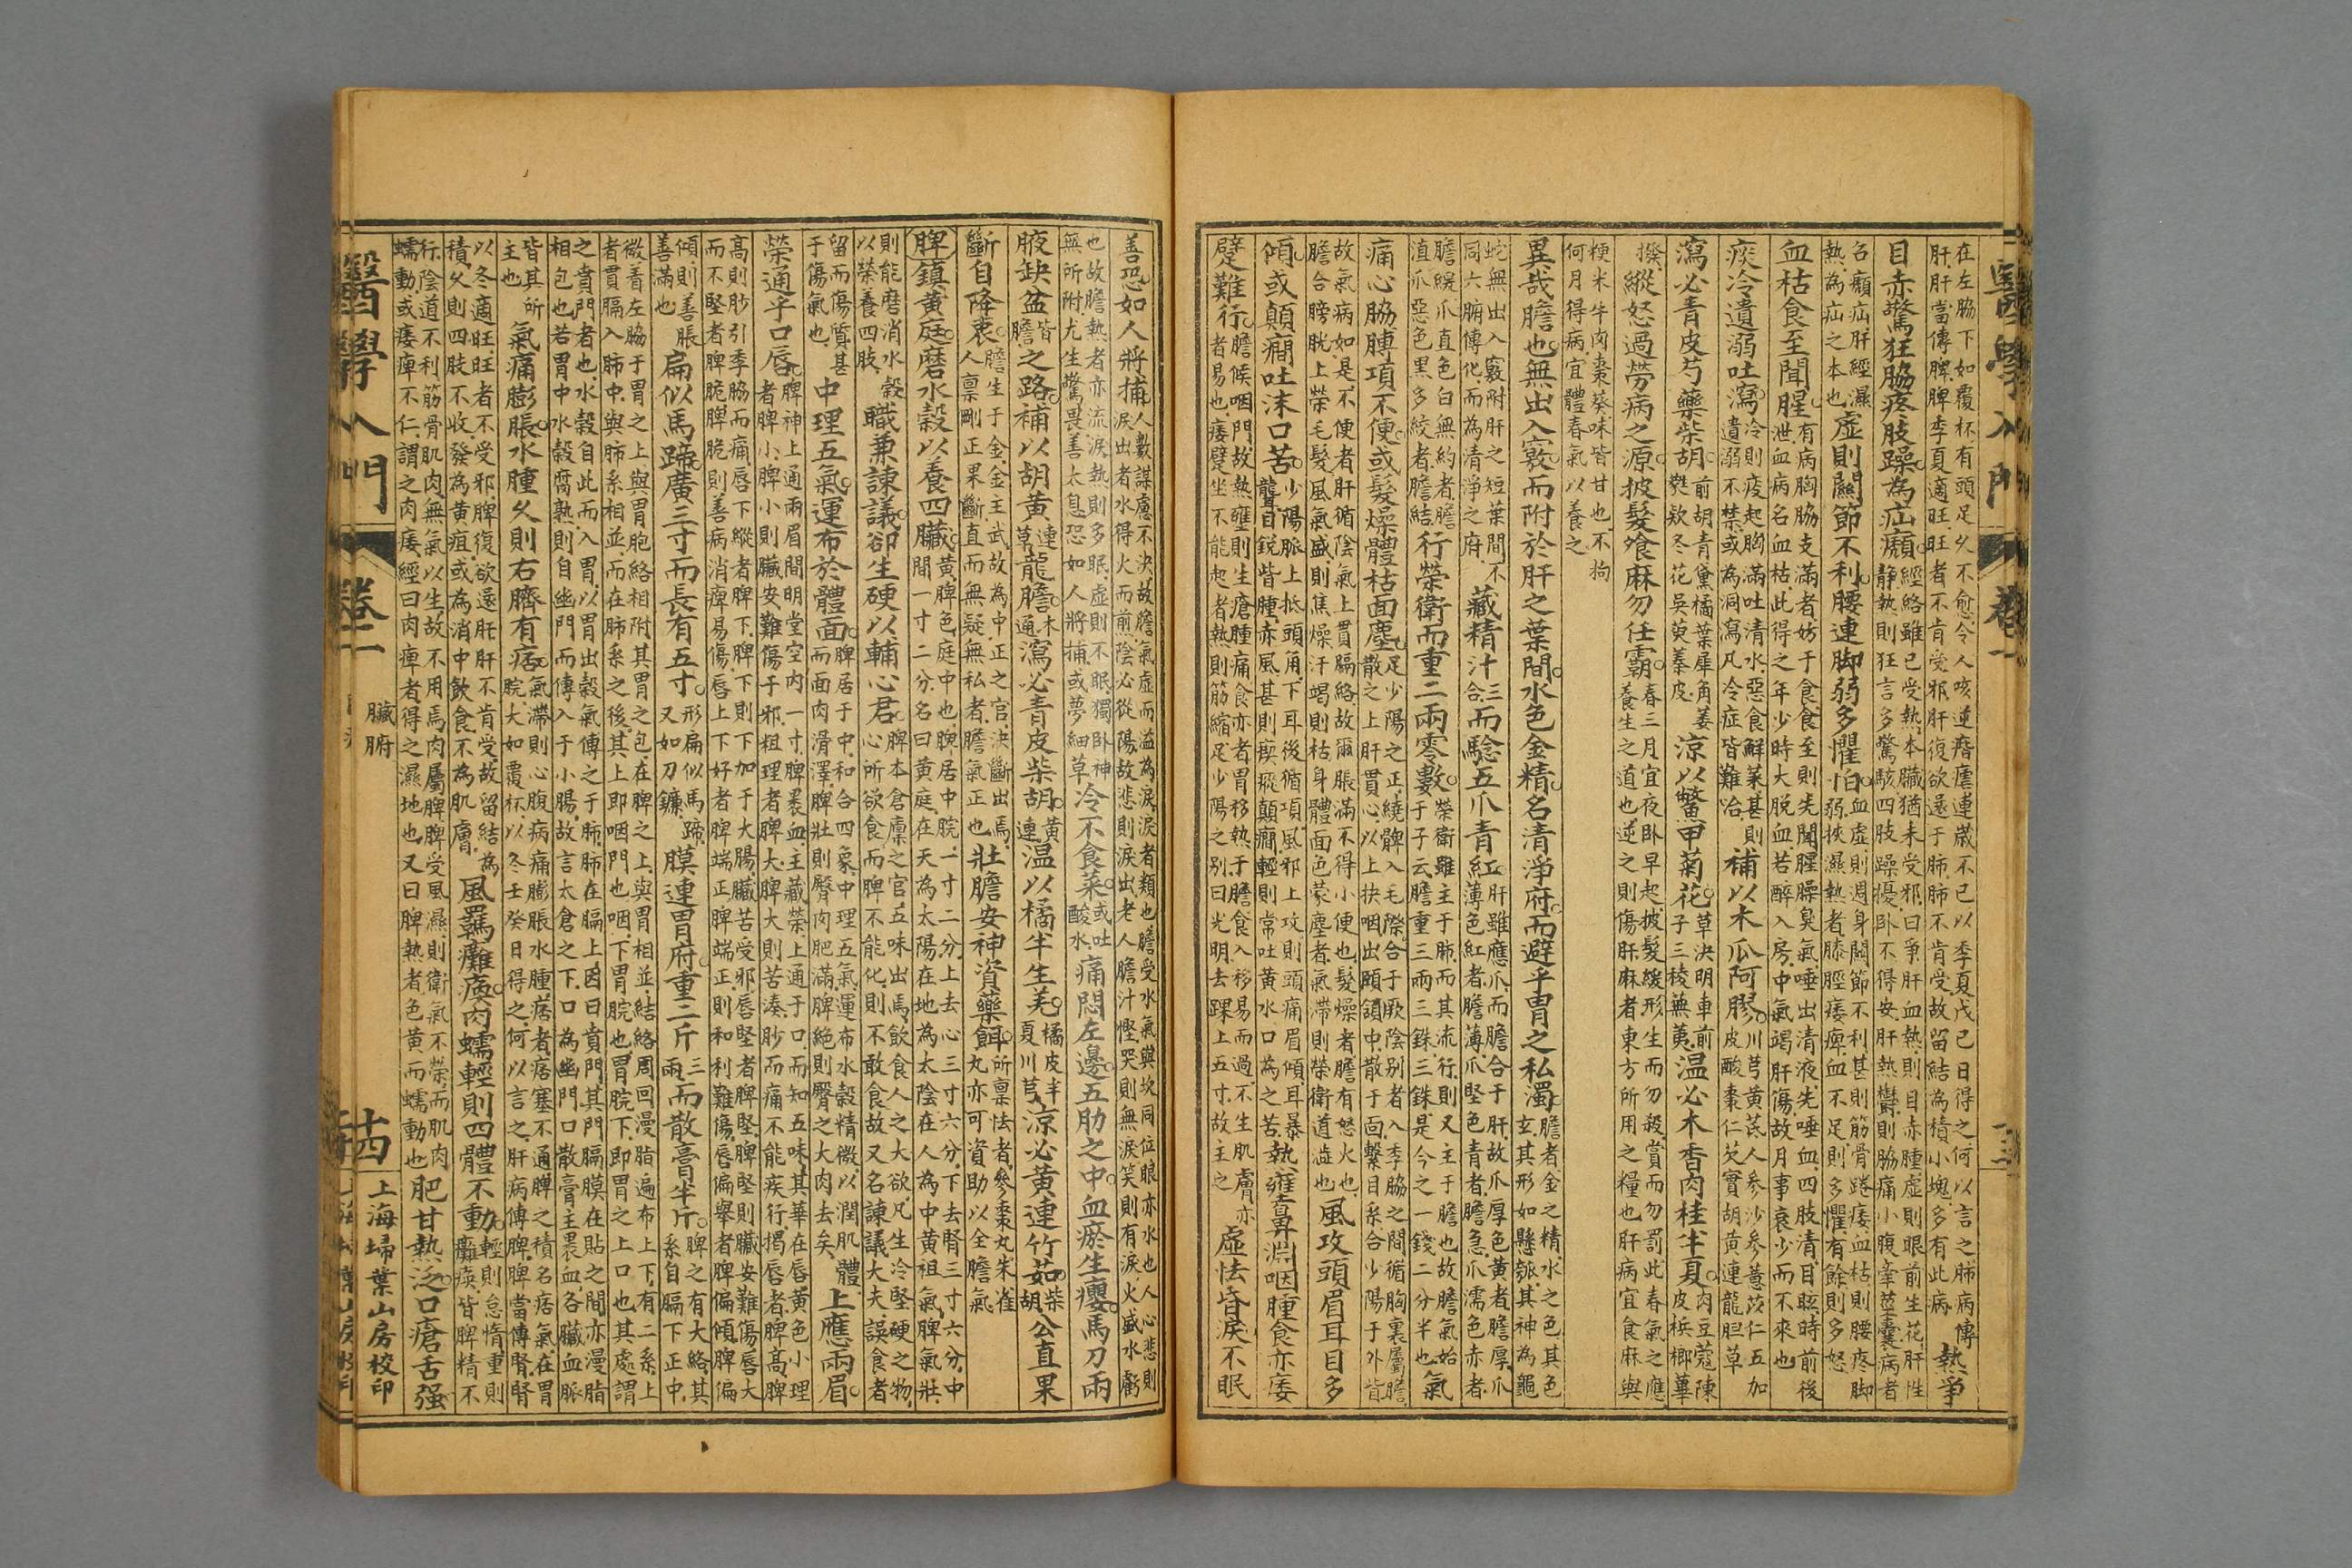 醫學入門 卷一 十三
在左脇下如覆杯有頭足久不愈令人咳逆痎瘧連歲不已以季夏戊己日得之何以言之肺病傳
肝肝當傳脾脾季夏適旺旺者不肯受邪肝復欲還于肺肺不肯受故留結為積小塊多有此病 熱爭
目赤驚狂脇疼肢躁為疝㿗 經絡雖已受熱本臟猶未受邪曰爭肝血熱則目赤腫虛則眼前生花肝性
靜熱則狂言多驚駭四肢躁擾臥不得安肝熱鬱則脇痛小腹睾莖囊病者
名㿗疝肝經濕
熱為疝之本也 虛則關節不利腰連脚弱多懼怕 血虛則週身關節不利甚則筋骨踡痿血枯則腰疼脚
弱挾濕熱者膝脛痿痺血不足則多懼有餘則多怒
血枯食至聞腥 有病胸脇支滿者妨于食食至則先聞腥臊臭氣唾出清液先唾血四肢清目眩時前後
泄血病名血枯此得之年少時大脫血若醉入房中氣竭肝傷故月事衰少而不來也
痰冷遺溺吐瀉 冷則痰起胸滿吐清水惡食鮮菜甚則
遺溺不禁或為洞瀉凡冷症皆難治 補以木瓜阿膠 川芎黃芪人參沙參薏苡仁五加
皮酸棗仁芡實胡黃連龍胆草
瀉必青皮芍藥柴胡 前胡青黛橘葉犀角
款冬花吳萸秦皮 涼以鱉甲菊花 草決明車前
子三稜蕪荑 温必木香肉桂半夏 肉豆蔻陳
皮檳榔蓽
撥 縱怒過勞病之源披髮飱麻勿任霸 春三月宜夜臥早起披髮緩形生而勿殺賞而勿罰此春氣之應
養生之道也逆之則傷肝麻者東方所用之糧也肝病宜食麻與
粳米牛肉棗葵味皆甘也不拘
何月得病宜體春氣以養之
異哉膽也無出入竅而附於肝之葉間水色金精名清淨府而避乎胃之私濁 膽者金之精水之色其色
玄其形如懸瓠其神為龜
蛇無出入竅附肝之短葉間不
同六腑傳化而為清淨之府 藏精汁三合而驗五爪青紅 肝雖應爪而膽合于肝故爪厚色黃者膽厚爪
薄色紅者膽薄爪堅色青者膽急爪濡色赤者
膽緩爪直色白無約者膽
直爪惡色黑多紋者膽結 行榮衛而重二兩零數 榮衛雖主于肺而其流行則又主于膽也故膽氣始
于子云膽重三兩三銖三銖是今之一錢二分半也 氣
痛心脇膊項不便或髮燥體枯面塵 足少陽之正繞髀入毛際合于厥陰别者入季脇之間循胸裏屬膽
散之上肝貫心以上挾咽出頤頷中散于面繫目系合少陽于外眥
故氣病如是不便者肝循陰氣上貫膈絡故爾脹滿不得小便也髮燥者膽有怒火也
膽合膀胱上榮毛髮風氣盛則焦燥汗竭則枯身體面色蒙塵者氣滯則榮衛道澁也 風攻頭眉耳目多
傾或顛癎吐沫口苦 少陽脈上抵頭角下耳後循項風邪上攻則頭痛眉傾耳暴
聾目銳眥腫赤風甚則瘈瘲顛癎輕則常吐黃水口為之苦 熱壅鼻淵咽腫食亦痿
躄難行 膽候咽門故熱壅則生瘡腫痛食亦者胃移熱于膽食入移易而過不生肌膚亦
者易也痿躄坐不能起者熱則筋縮足少陽之别曰光明去踝上五寸故主之 虛怯昏淚不眠
善恐如人將捕 人數謀慮不決故膽氣虛而溢為淚淚者類也膽受水氣與坎同位眼亦水也人心悲則
淚出者水得火而煎陰必從陽故悲則淚出老人膽汁慳哭則無淚笑則有淚火盛水虧
也故膽熱者亦流淚熱則多眠虛則不眠獨臥神
無所附尤生驚畏善太息恐如人將捕或夢細草 冷不食菜 或吐
酸水 痛悶左邊五肋之中血瘀生癭馬刀兩
腋缺盆 皆
膽 之路補以胡黃連 草龍膽 木
通 瀉必青皮柴胡 黃
連 温以橘半生羌 橘皮半
夏川芎 涼必黃連竹茹 柴
胡 公直果
斷自降衷 膽生于金金主武故為中正之官決斷出焉
人禀剛正果斷直而無疑無私者膽氣正也 壯膽安神資藥餌 所禀怯者參棗丸朱雀
丸亦可資助以全膽氣
脾鎮黃庭磨水穀以養四臟 黃脾色庭中也脾居中脘一寸二分上去心三寸六分下去腎三寸六分中
間一寸二分名曰黃庭在天為太陽在地為太陰在人為中黃祖氣脾氣壯
則能磨消水穀
以榮養四肢 職兼諫議卻生硬以輔心君 脾本倉廩之官五味出焉飲食人之大欲凡生冷堅硬之物
心所欲食而脾不能化則不敢食故又名諫議大夫誤食者
留而傷質甚
于傷氣也 中理五氣運布於體面 脾居于中和合四象中理五氣運布水穀精微以潤肌體
而面肉滑澤脾壯則臀肉肥滿脾絕則臀之大肉去矣 上應兩眉
榮通乎口唇 脾神上通兩眉間明堂空內一寸脾裹血主藏榮上通于口而知五味其華在唇黃色小理
者脾小脾小則臟安難傷于邪粗理者脾大脾大則苦湊䏚而痛不能疾行揭唇者脾高脾
高則䏚引季脇而痛唇下縱者脾下脾下則下加于大腸臟苦受邪唇堅者脾堅脾堅則臟安難傷唇大
而不堅者脾脆脾脆則善病消癉易傷唇上下好者脾端正脾端正則和利難傷唇偏舉者脾偏傾脾偏
傾則善脹
善滿也 扁似馬蹄廣三寸而長有五寸 形扁似馬蹄
又如刀鐮 膜連胃府重二斤三兩而散膏半斤 脾之有大絡其
系自膈下正中
微著左脇于胃之上與胃胞絡相附其胃之包在脾之上與胃相並結絡周回漫脂遍布上下有二系上
者貫膈入肺中與肺系相並而在肺系之後其上即咽門也咽下胃脘也胃脘下即胃之上口也其處謂
之賁門者也水穀自此而入胃以胃出穀氣傳之于肺肺在膈上因曰賁門其門膈膜在貼之間亦漫脂
相包也若胃中水穀腐熟則自幽門而傳入于小腸故言太倉之下口為幽門口散膏主裹血各臟血脈
皆其所
主也 氣痛膨脹水腫久則右臍有痞 氣滯則心腹病痛膨脹水腫痞者痞塞不通脾之積名痞氣在胃
脘大如覆杯以冬壬癸日得之何以言之肝病傳脾脾當傳腎腎
以冬適旺旺者不受邪脾復欲還肝肝不肯受故留結為
積久則四肢不收發為黃疸或為消中飲食不為肌膚 風羈癱瘓肉蠕輕則四體不動 輕則怠惰重則
癱瘓皆脾精不
行陰道不利筋骨肌肉無氣以生故不用焉肉屬脾脾受風濕則衛氣不榮而肌肉
蠕動或痿痺不仁謂之肉痿經曰肉痺者得之濕地也又曰脾熱者色黃而蠕動也 肥甘熱泛口瘡舌强
醫學入門 卷一 臟腑 十四 上海埽葉山房校印